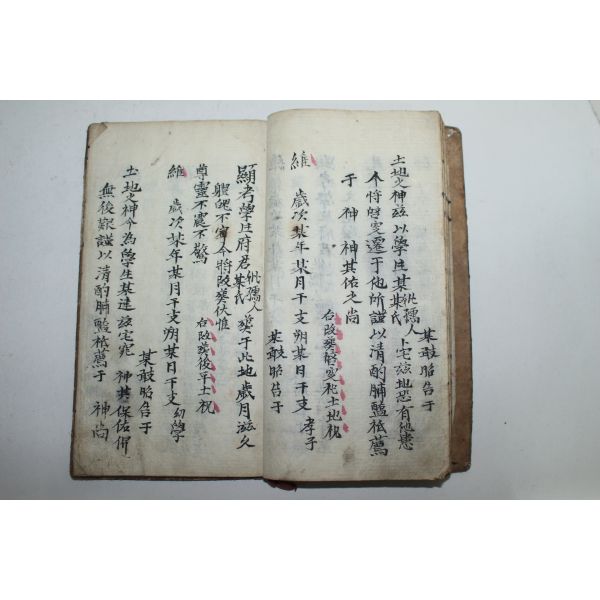 某敢昭告于
土地之神玆以學生某 妣孺人某氏 卜宅玆地恐有他患
今將啓窆遷于他所謹以清酌脯醢祗薦
于 神 神其佑之尙
右改葬啓窆祀土地祝
維 歲次某年某月干支朔某日干支 孝子
某敢昭告于
顯考學生府君 妣孺人某氏 葬于此地歲月滋久
體魄不寧今將改葬伏惟
尊靈不震不驚
右改葬後平土祝
維 歲次某年某月干支朔某日干支 幼學
某敢昭告于
土地之神今為學生某建玆宅兆 神其保佑俾
無後艱謹以清酌脯醢祗薦于 神尙